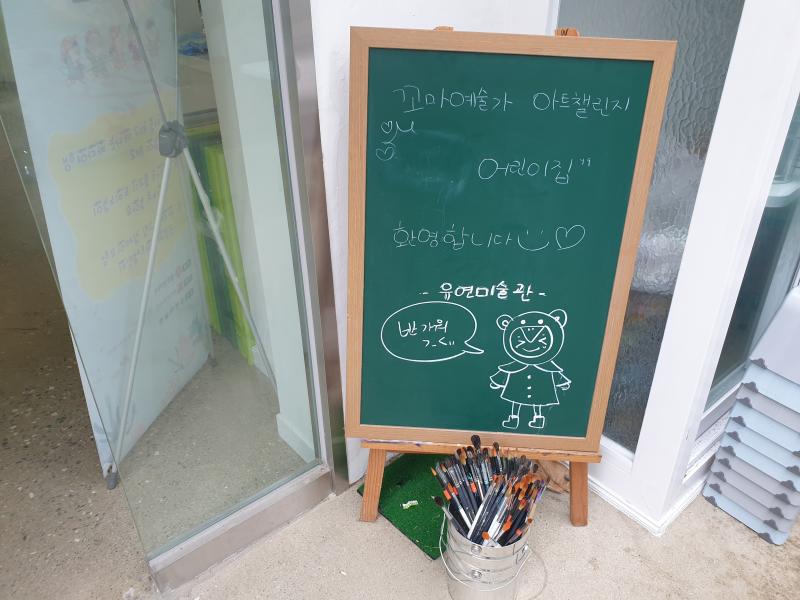 꼬마예술가 아트챌린지
어린이집"
환영합니다
- 유연미술관 -
반가워